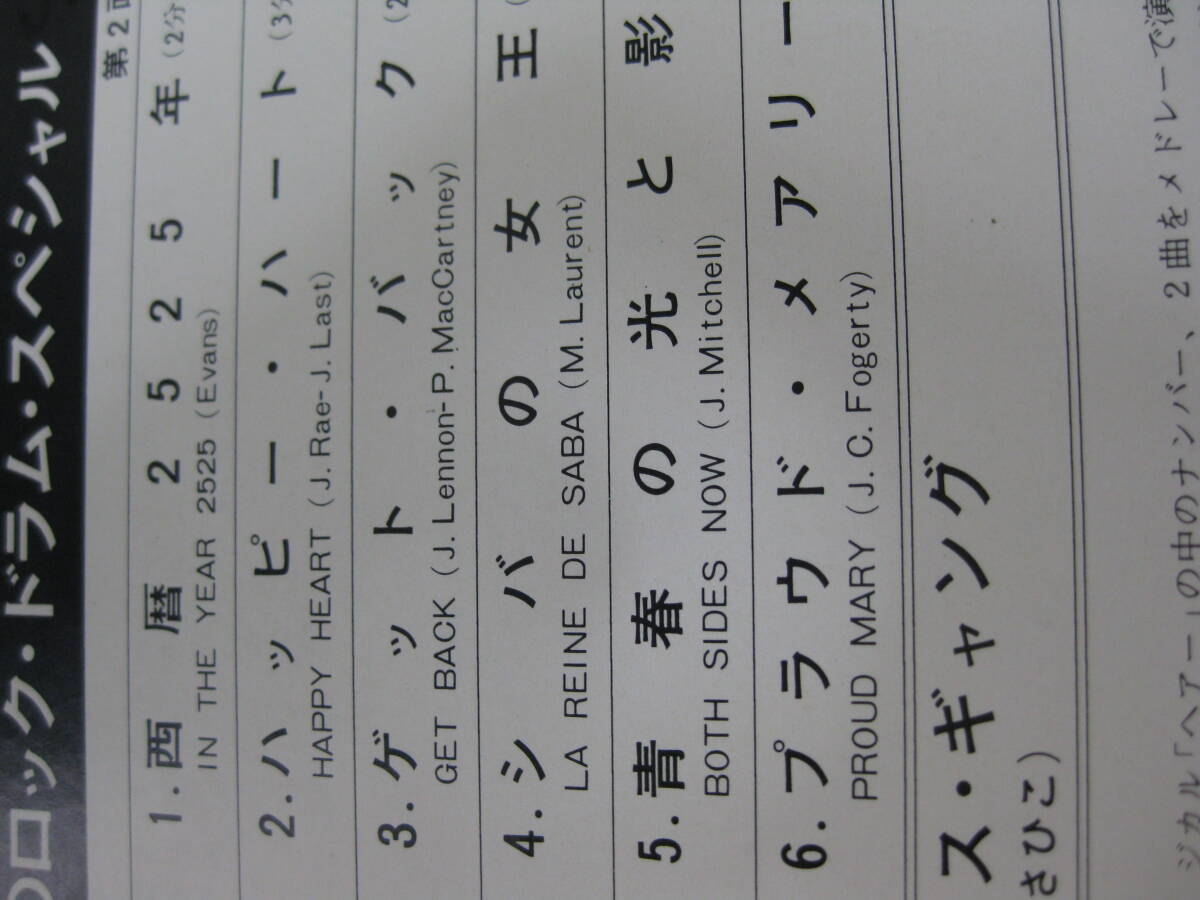 のロック・ドラム・スペシャル
第2面
1.西暦2525年(2分
IN THE YEAR 2525 (Evans)
2.ハッピー・ハート(3分
HAPPY HEART (J. Rae-J. Last)
3.ゲット・バック(2
GET BACK (J. Lennon-P. MacCartney)
4.シバの女王(
LA REINE DE SABA (M. Laurent)
5.青春の光と影
BOTH SIDES NOW (J. Mitchell)
6.プラウド・メアリー
PROUD MARY (J. C. Fogerty)
ス・ギャング
さひこ)
ジカル「ヘアー」の中のナンバー、2曲をメドレーで演